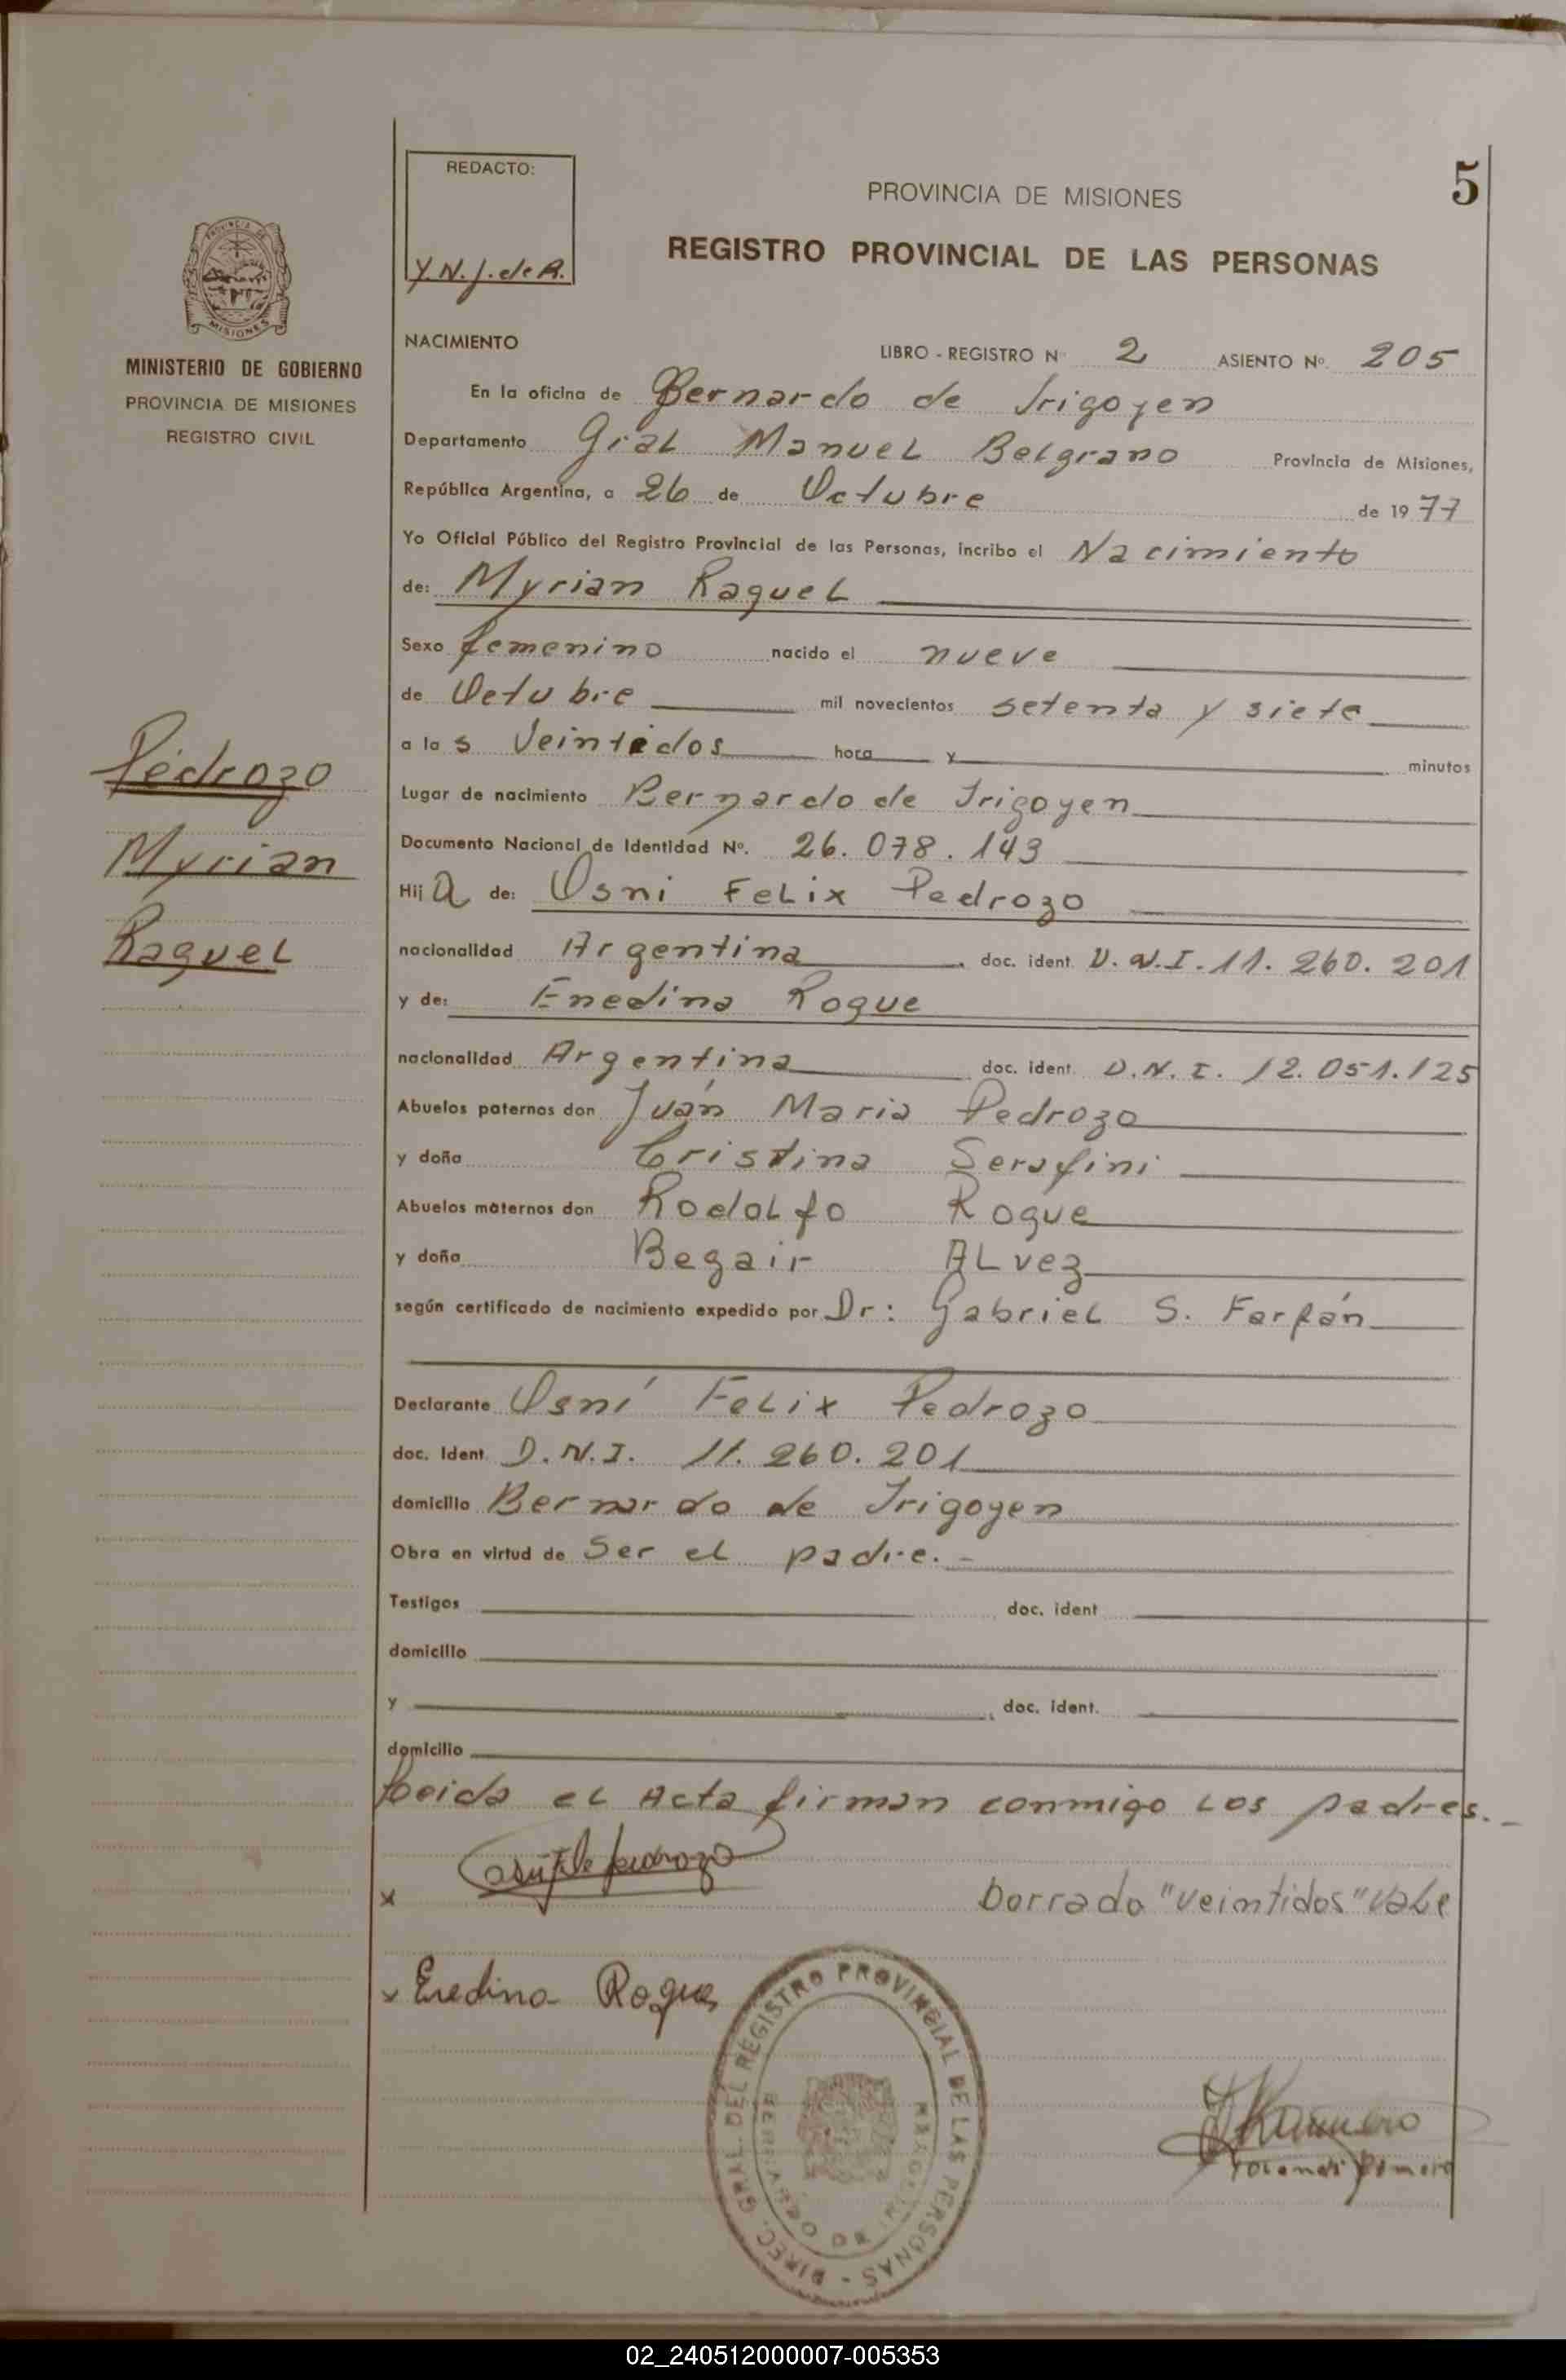 5
REDACTO:
Y.N.J. de R.
PROVINCIA DE MISIONES
REGISTRO PROVINCIAL DE LAS PERSONAS
MISIONES
MINISTERIO DE GOBIERNO
PROVINCIA DE MISIONES
REGISTRO CIVIL
Pedrozo
Myrian
Raquel
NACIMIENTO
LIBRO - REGISTRO Nº 2 ASIENTO Nº. 205
En la oficina de Bernardo de Irigoyen
Departamento Gral Manuel Belgrano Provincia de Misiones,
República Argentina, a 26 de Octubre de 1977
Yo Oficial Público del Registro Provincial de las Personas, incribo el Nacimiento
de: Myrian Raquel
Sexo femenino nacido el nueve
de Octubre mil novecientos setenta y siete
a la s Veintidos hora y minutos
Lugar de nacimiento Bernardo de Irigoyen
Documento Nacional de Identidad Nº. 26.078.143
Hij a de: Osni Felix Pedrozo
nacionalidad Argentina doc. ident. D.N.I. 11.260.201
y de: Enedina Roque
nacionalidad Argentina doc. ident. D.N.I. 12.051.125
Abuelos paternos don Juán Maria Pedrozo
y doña Cristina Serafini
Abuelos maternos don Rodolfo Roque
y doña Begair Alvez
según certificado de nacimiento expedido por Dr: Gabriel S. Farfán
Declarante Osní Felix Pedrozo
doc. Ident. D.N.I. 11.260.201
domicilio Bernardo de Irigoyen
Obra en virtud de Ser el padre.-
Testigos doc. ident
domicilio
y , doc. ident.
domicilio
Leida el Acta firman conmigo los padres.-
x
borrado "veintidos" Vale
x Enedina Roque
DIREC. GRAL. DEL REGISTRO PROVINCIAL DE LAS PERSONAS -
02_240512000007-005353